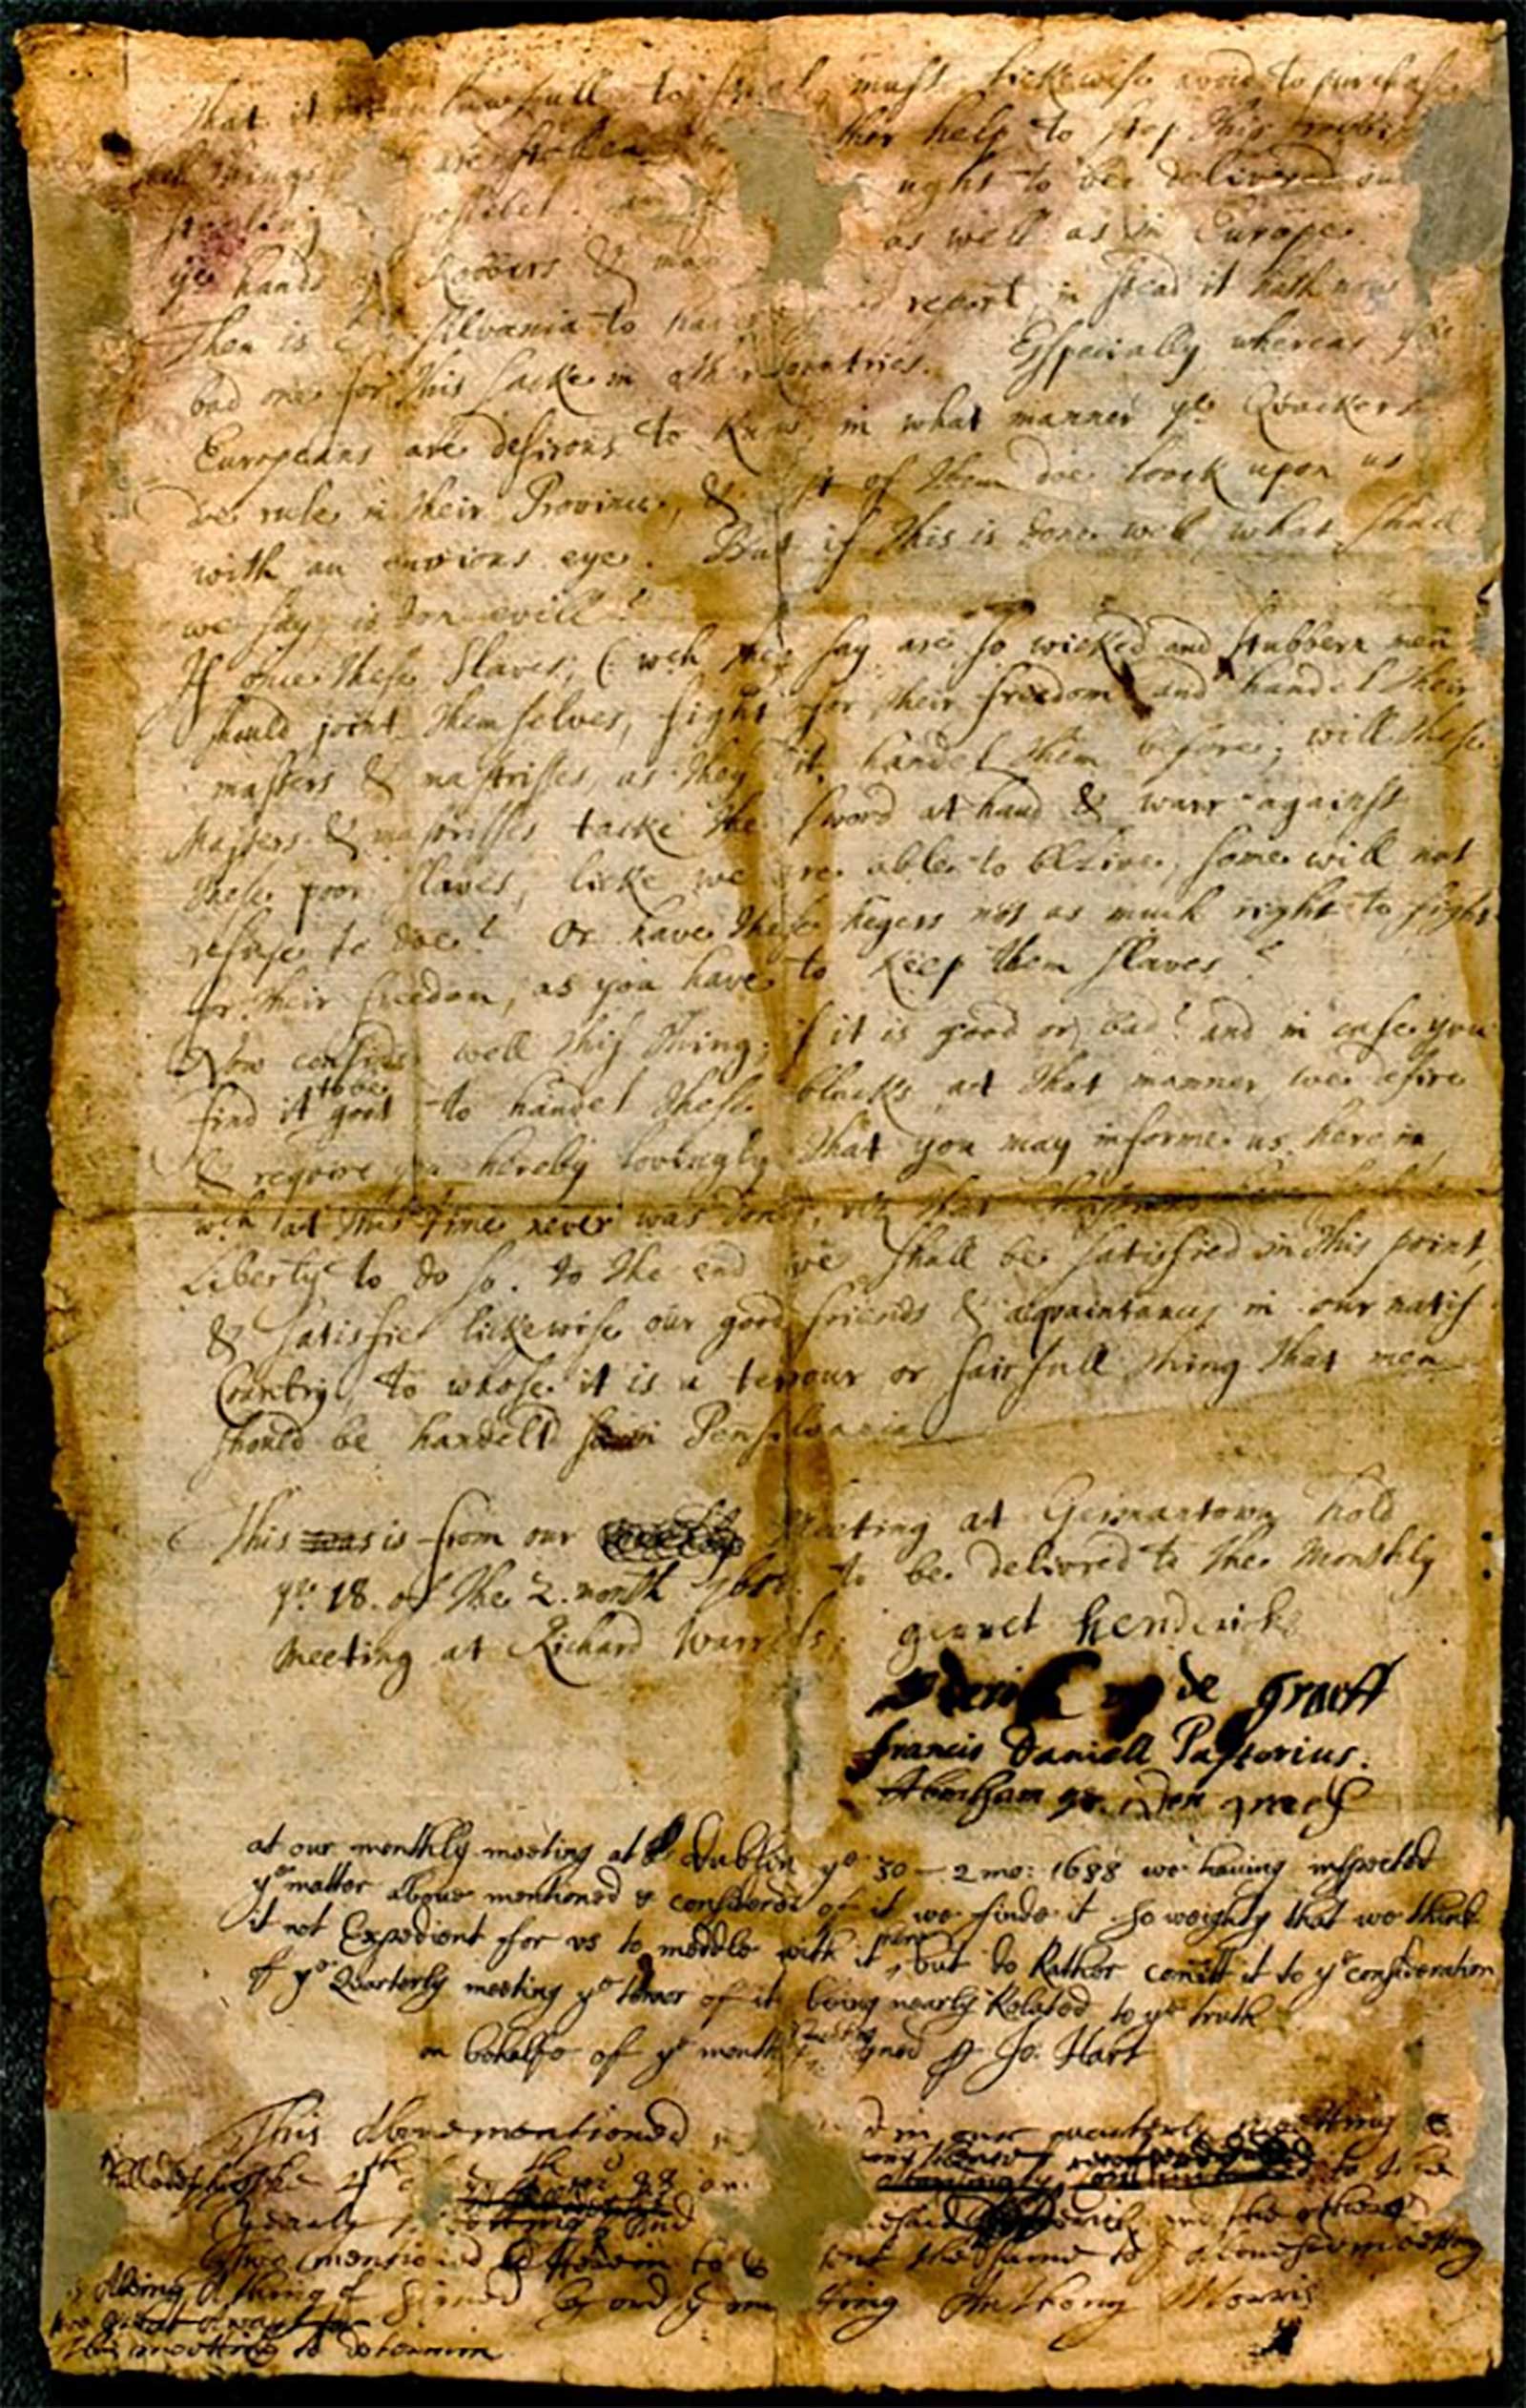 that it is unlawfull to steal, must lickewise avoid to purchase
such things are stollen ther help to stop this
possibel. ught to bee delivered ou
ye hands of Robbers & man as well as in Europe.
Then is silvania to have d report, in stead it hath now
bad one for this sacke in other Countries. Especially whereas ye
Europeans are desirous to know, in what manner ye Quackers
doe rule in their Province, & of them doe loock upon us
with an envious eye. But if this is done well, what shall
we say is don evill?
If once these Slaves, (: wch they say are so wicked and stubbern men
should joint themselves, fight for their freedom and handel their
masters & mastrisses, as they did handel them before; will these
Masters & mastrisses tacke the sword at hand & warr against
these poor slaves, licke we are able to believe, some will not
refuse to doe? Or have these Negers not as much right to fight
for their freedom, as you have to keep them slaves?
Now consider well this thing, if it is good or bad? and in case you
find it to be good to handel these blacks at that manner, we desire
& require you hereby lovingly that you may informe us herein,
wch at this time never was done, viz that
Liberty to do so. to the end we shall be satisfied in this point,
& satisfie lickewise our good friends & acquaintances in our natif
Country, to whose it is a terrour or fairfull thing that men
should be handeld so in Pensilvania
This was is from our Meeting at Germantown hold
ye 18. of the 2. month 1688. to be delivred to the Monthly
Meeting at Richard Warrels.
gerret hendericks
derick op de graeff
Francis Daniell Pastorius.
Abraham op den graef
at our monthly meeting at Dublin ye 30 – 2 mo: 1688 we having inspected
ye matter above mentioned & considered of it we finde it so weighty that we think
it not Expedient for us to meddle with it here, but do Rather comitt it to ye consideration
of ye Quarterly meeting ye tenor of it being nearly Related to ye truth
on behalfe of ye month meeting signed p Jo: Hart
This Abovementioned d in our quarterly meeting
to the
yearly and and the other
Two mentioned therein to the same to abovesaid meeting
Being A thing of signed by ordr of meeting Anthony Morris
This meetting to determin